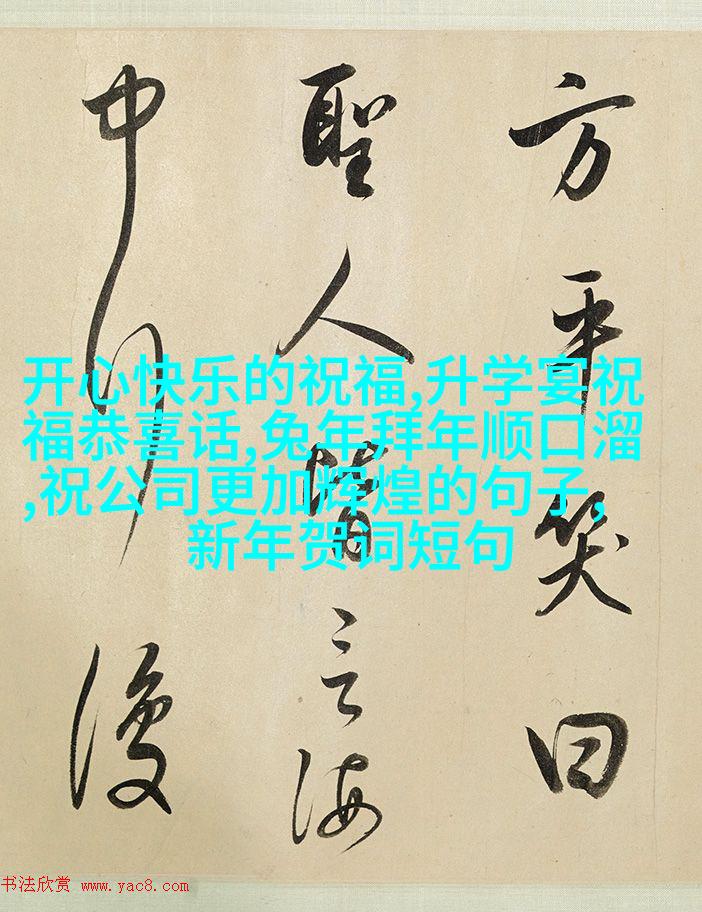 方平笑曰
聖人皆言海
中行復
开心快乐的祝福,升学宴祝
福恭喜话,兔年拜年顺口溜
,祝公司更加辉煌的句子,
新年贺词短句
书法欣赏 www.yac8.com